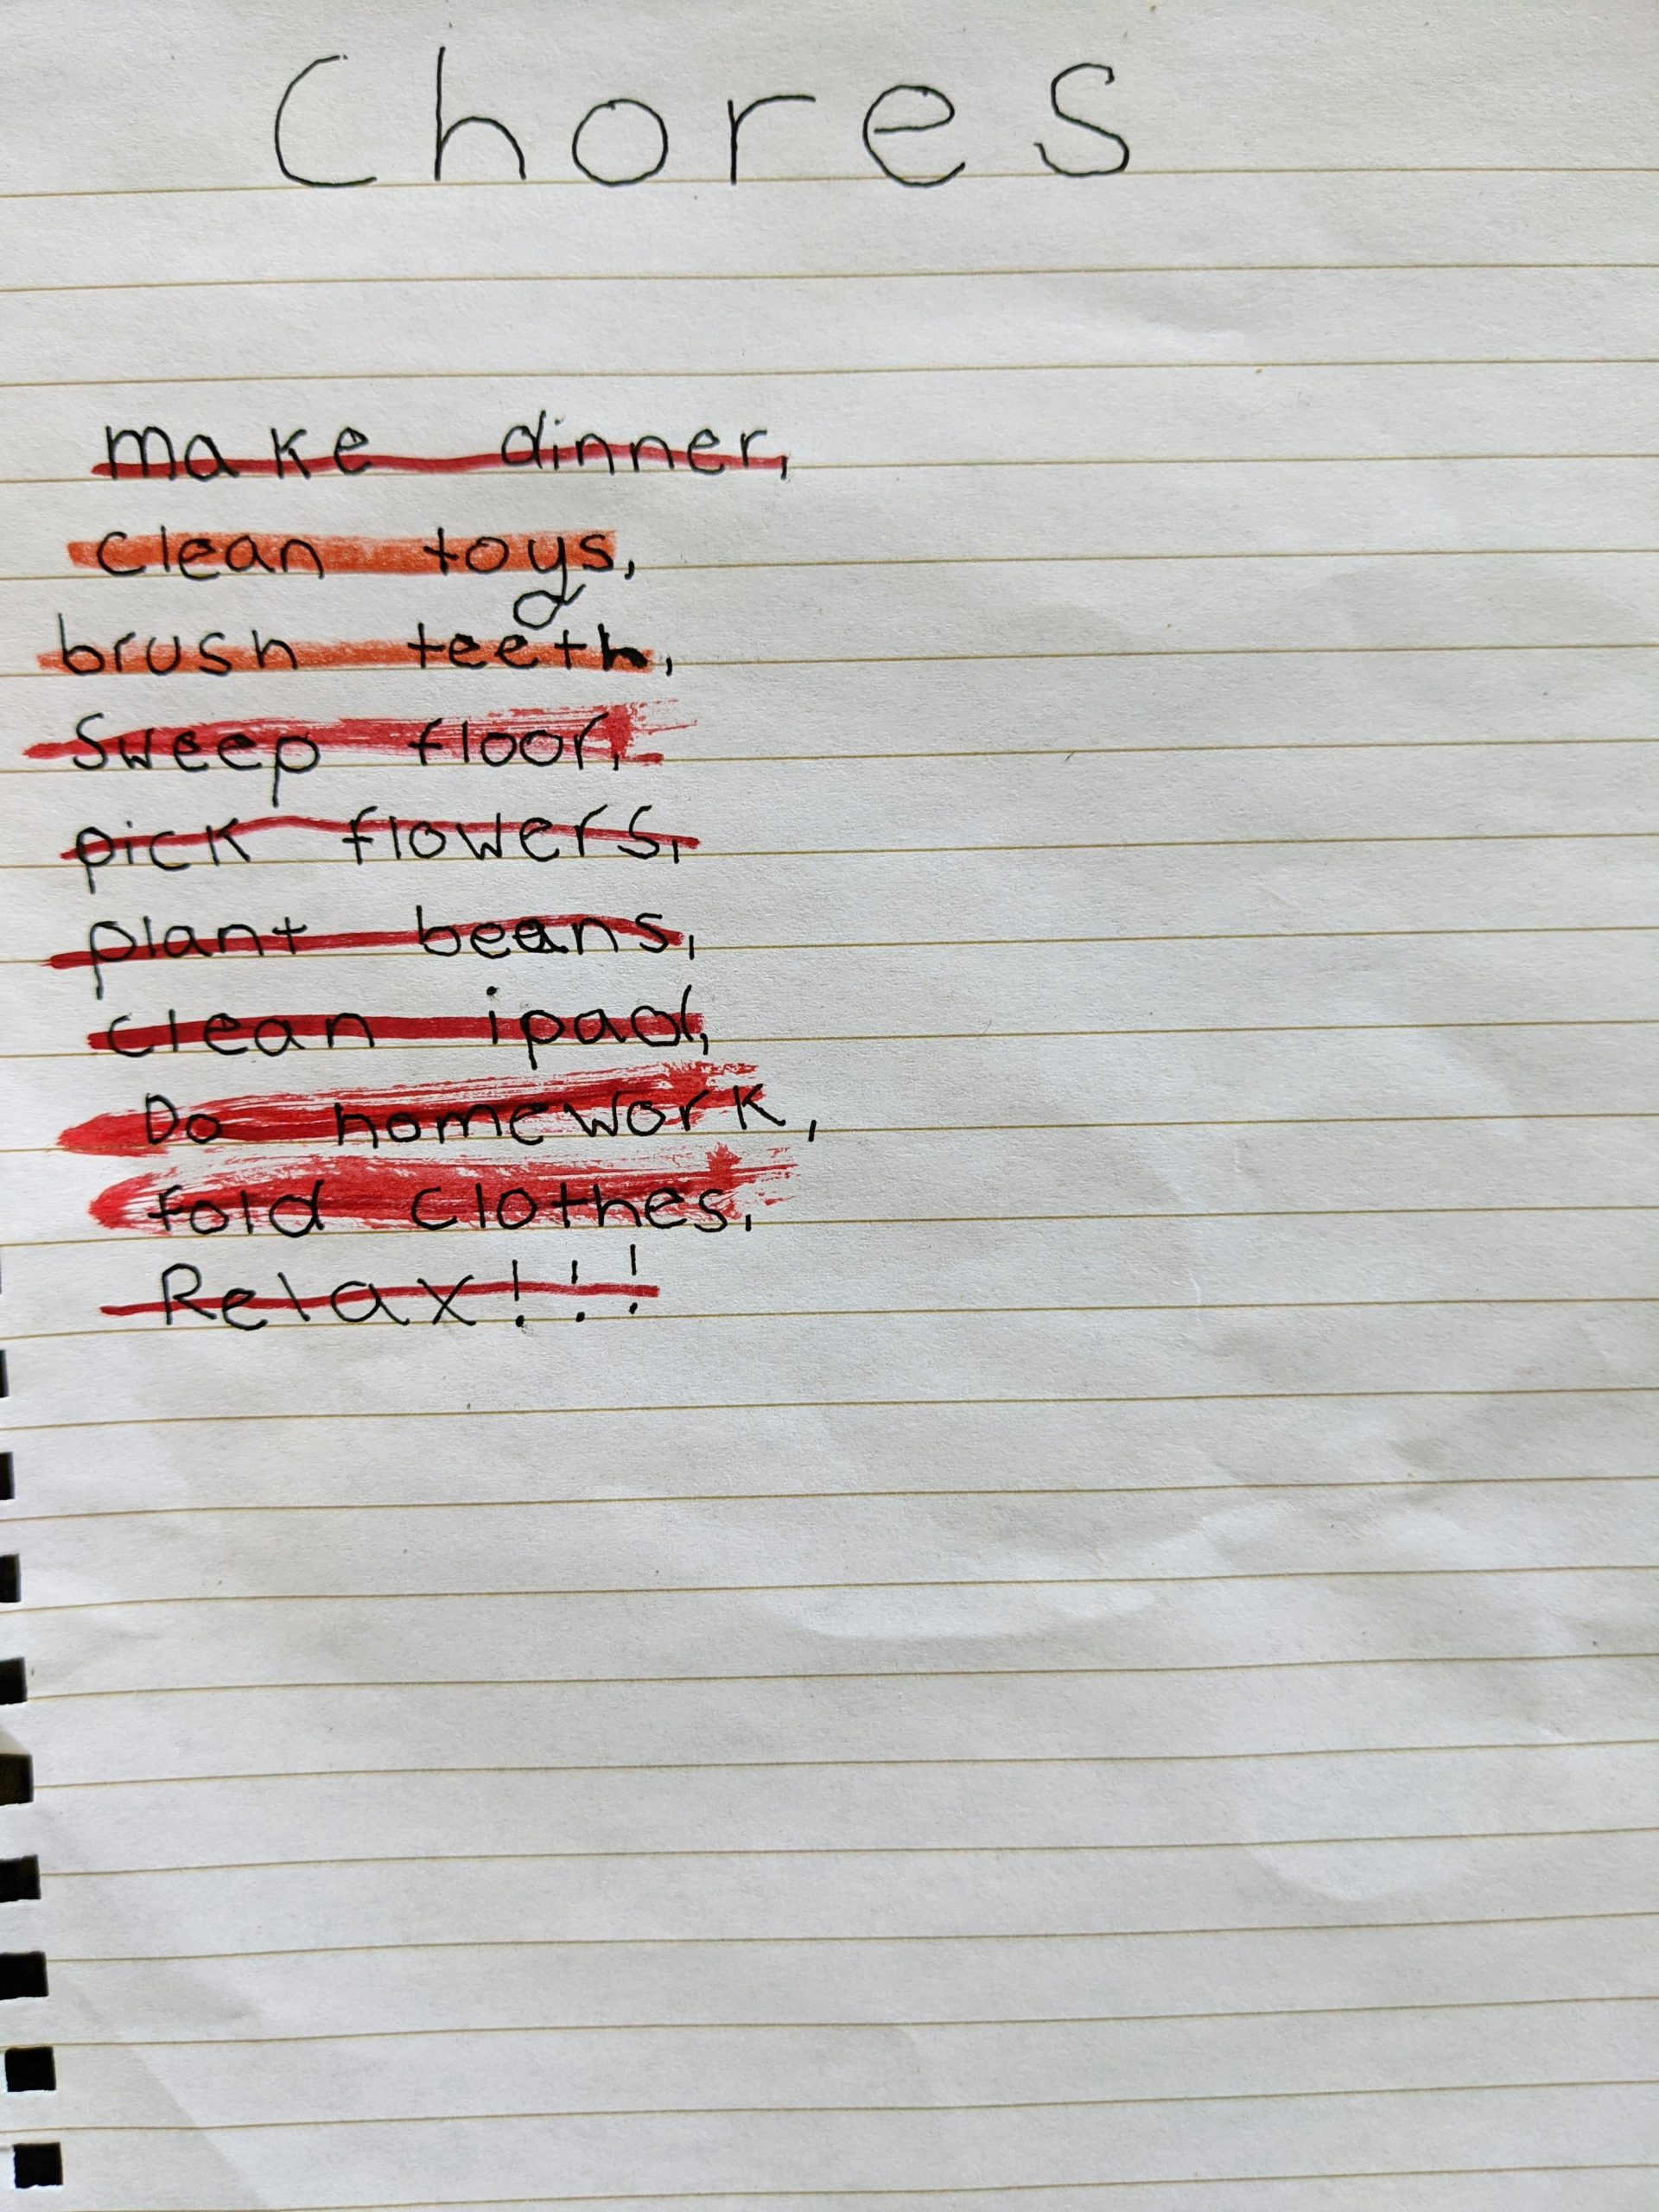 Chores
make dinner,
clean toys,
brush teeth,
Sweep floor,
pick flowers,
plant beans,
clean ipad,
Do homework,
fold clothes,
Relax!!!